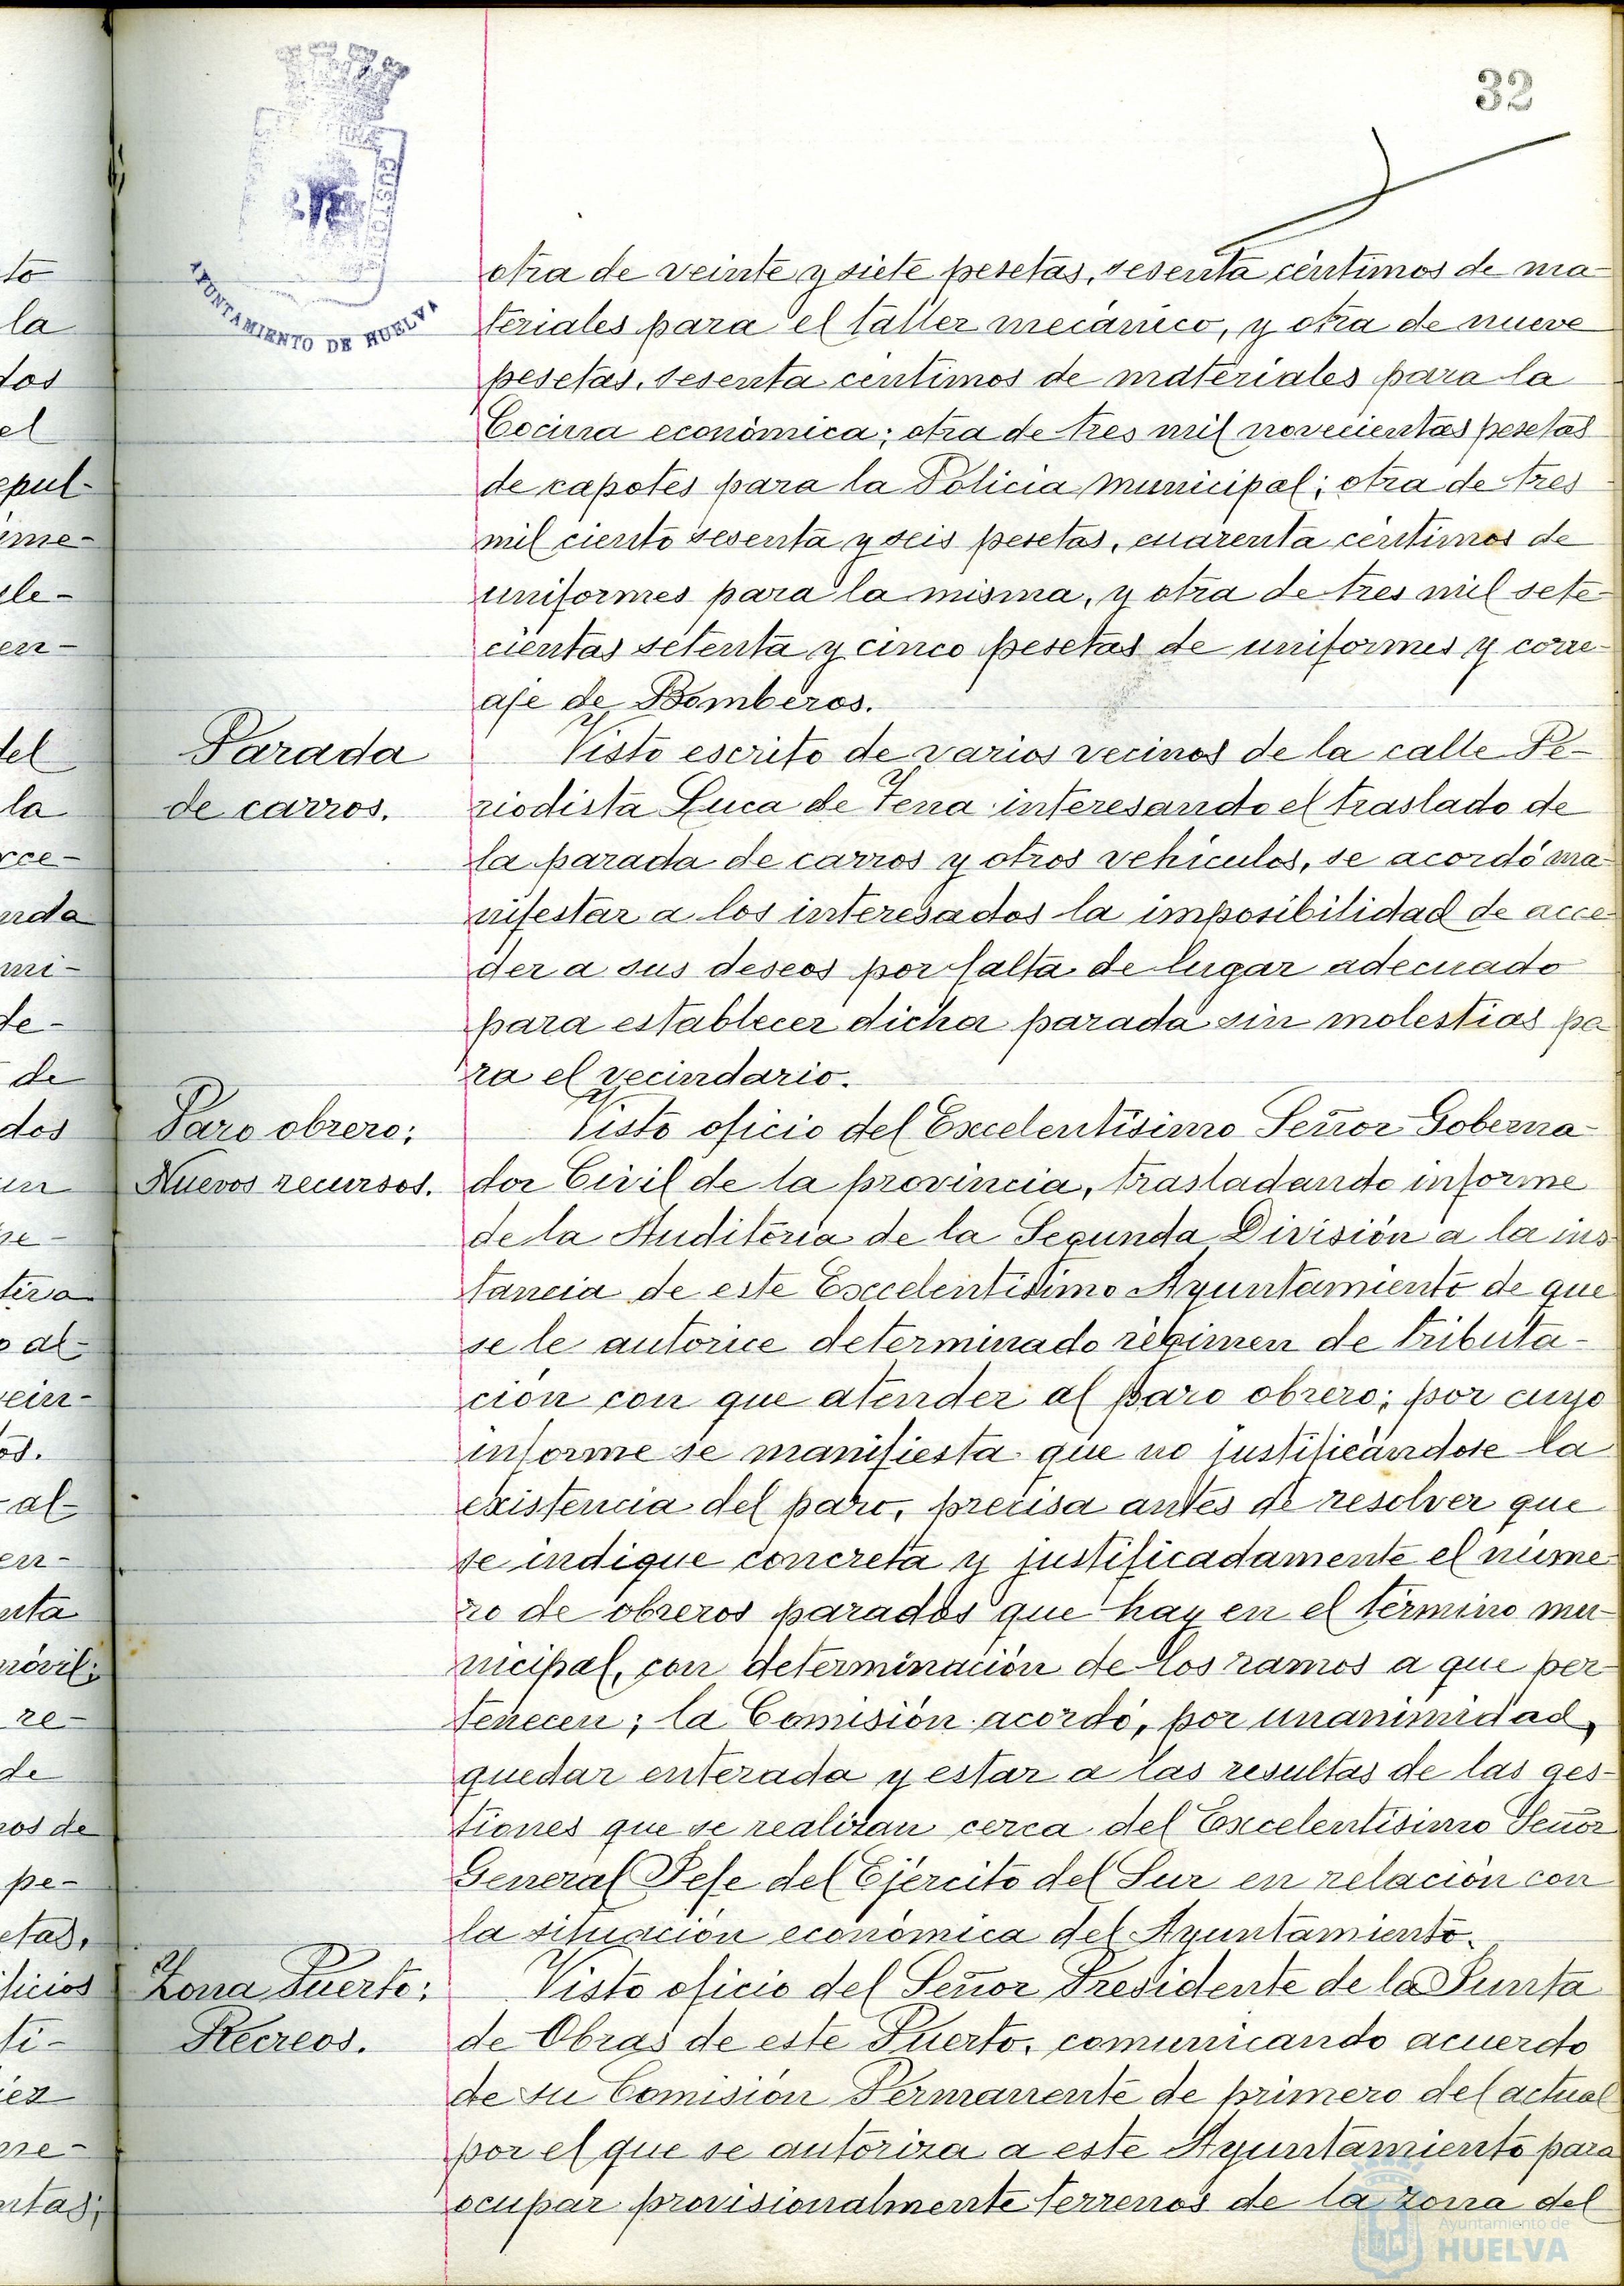 32
AYUNTAMIENTO DE HUELVA
otra de veinte y siete pesetas, sesenta céntimos de ma-
teriales para el taller mecánico, y otra de nueve
pesetas, sesenta céntimos de materiales para la
Cocina económica; otra de tres mil novecientas pesetas
de capotes para la Policia Municipal; otra de tres
mil ciento sesenta y seis pesetas, cuarenta céntimos de
uniformes para la misma, y otra de tres mil sete-
cientas setenta y cinco pesetas de uniformes y corre-
aje de Bomberos.
Parada
de carros.
Visto escrito de varios vecinos de la calle Pe-
riodista Luca de Tena interesando el traslado de
la parada de carros y otros vehiculos, se acordó ma-
nifestar a los interesados la imposibilidad de acce-
der a sus deseos por falta de lugar adecuado
para establecer dicha parada sin molestias pa
ra el vecindario.
Paro obrero:
Nuevos recursos.
Visto oficio del Excelentísimo Señor Goberna-
dor Civil de la provincia, trasladando informe
de la Auditoria de la Segunda División a la ins
tancia de este Excelentísimo Ayuntamiento de que
se le autorice determinado régimen de tributa-
ción con que atender al paro obrero; por cuyo
informe se manifiesta que no justificándose la
existencia del paro, precisa antes de resolver que
se indique concreta y justificadamente el núme-
ro de obreros parados que hay en el término mu-
nicipal, con determinación de los ramos a que per-
tenecen; la Comisión acordó, por unanimidad,
quedar enterada y estar a las resultas de las ges-
tiones que se realizan cerca del Excelentísimo Señor
General Jefe del Ejército del Sur en relación con
la situación económica del Ayuntamiento.
Zona Puerto:
Recreos.
Visto oficio del Señor Presidente de la Junta
de Obras de este Puerto, comunicando acuerdo
de su Comisión Permanente de primero del actual
por el que se autoriza a este Ayuntamiento para
ocupar provisionalmente terrenos de la zona del
Ayuntamiento de
HUELVA